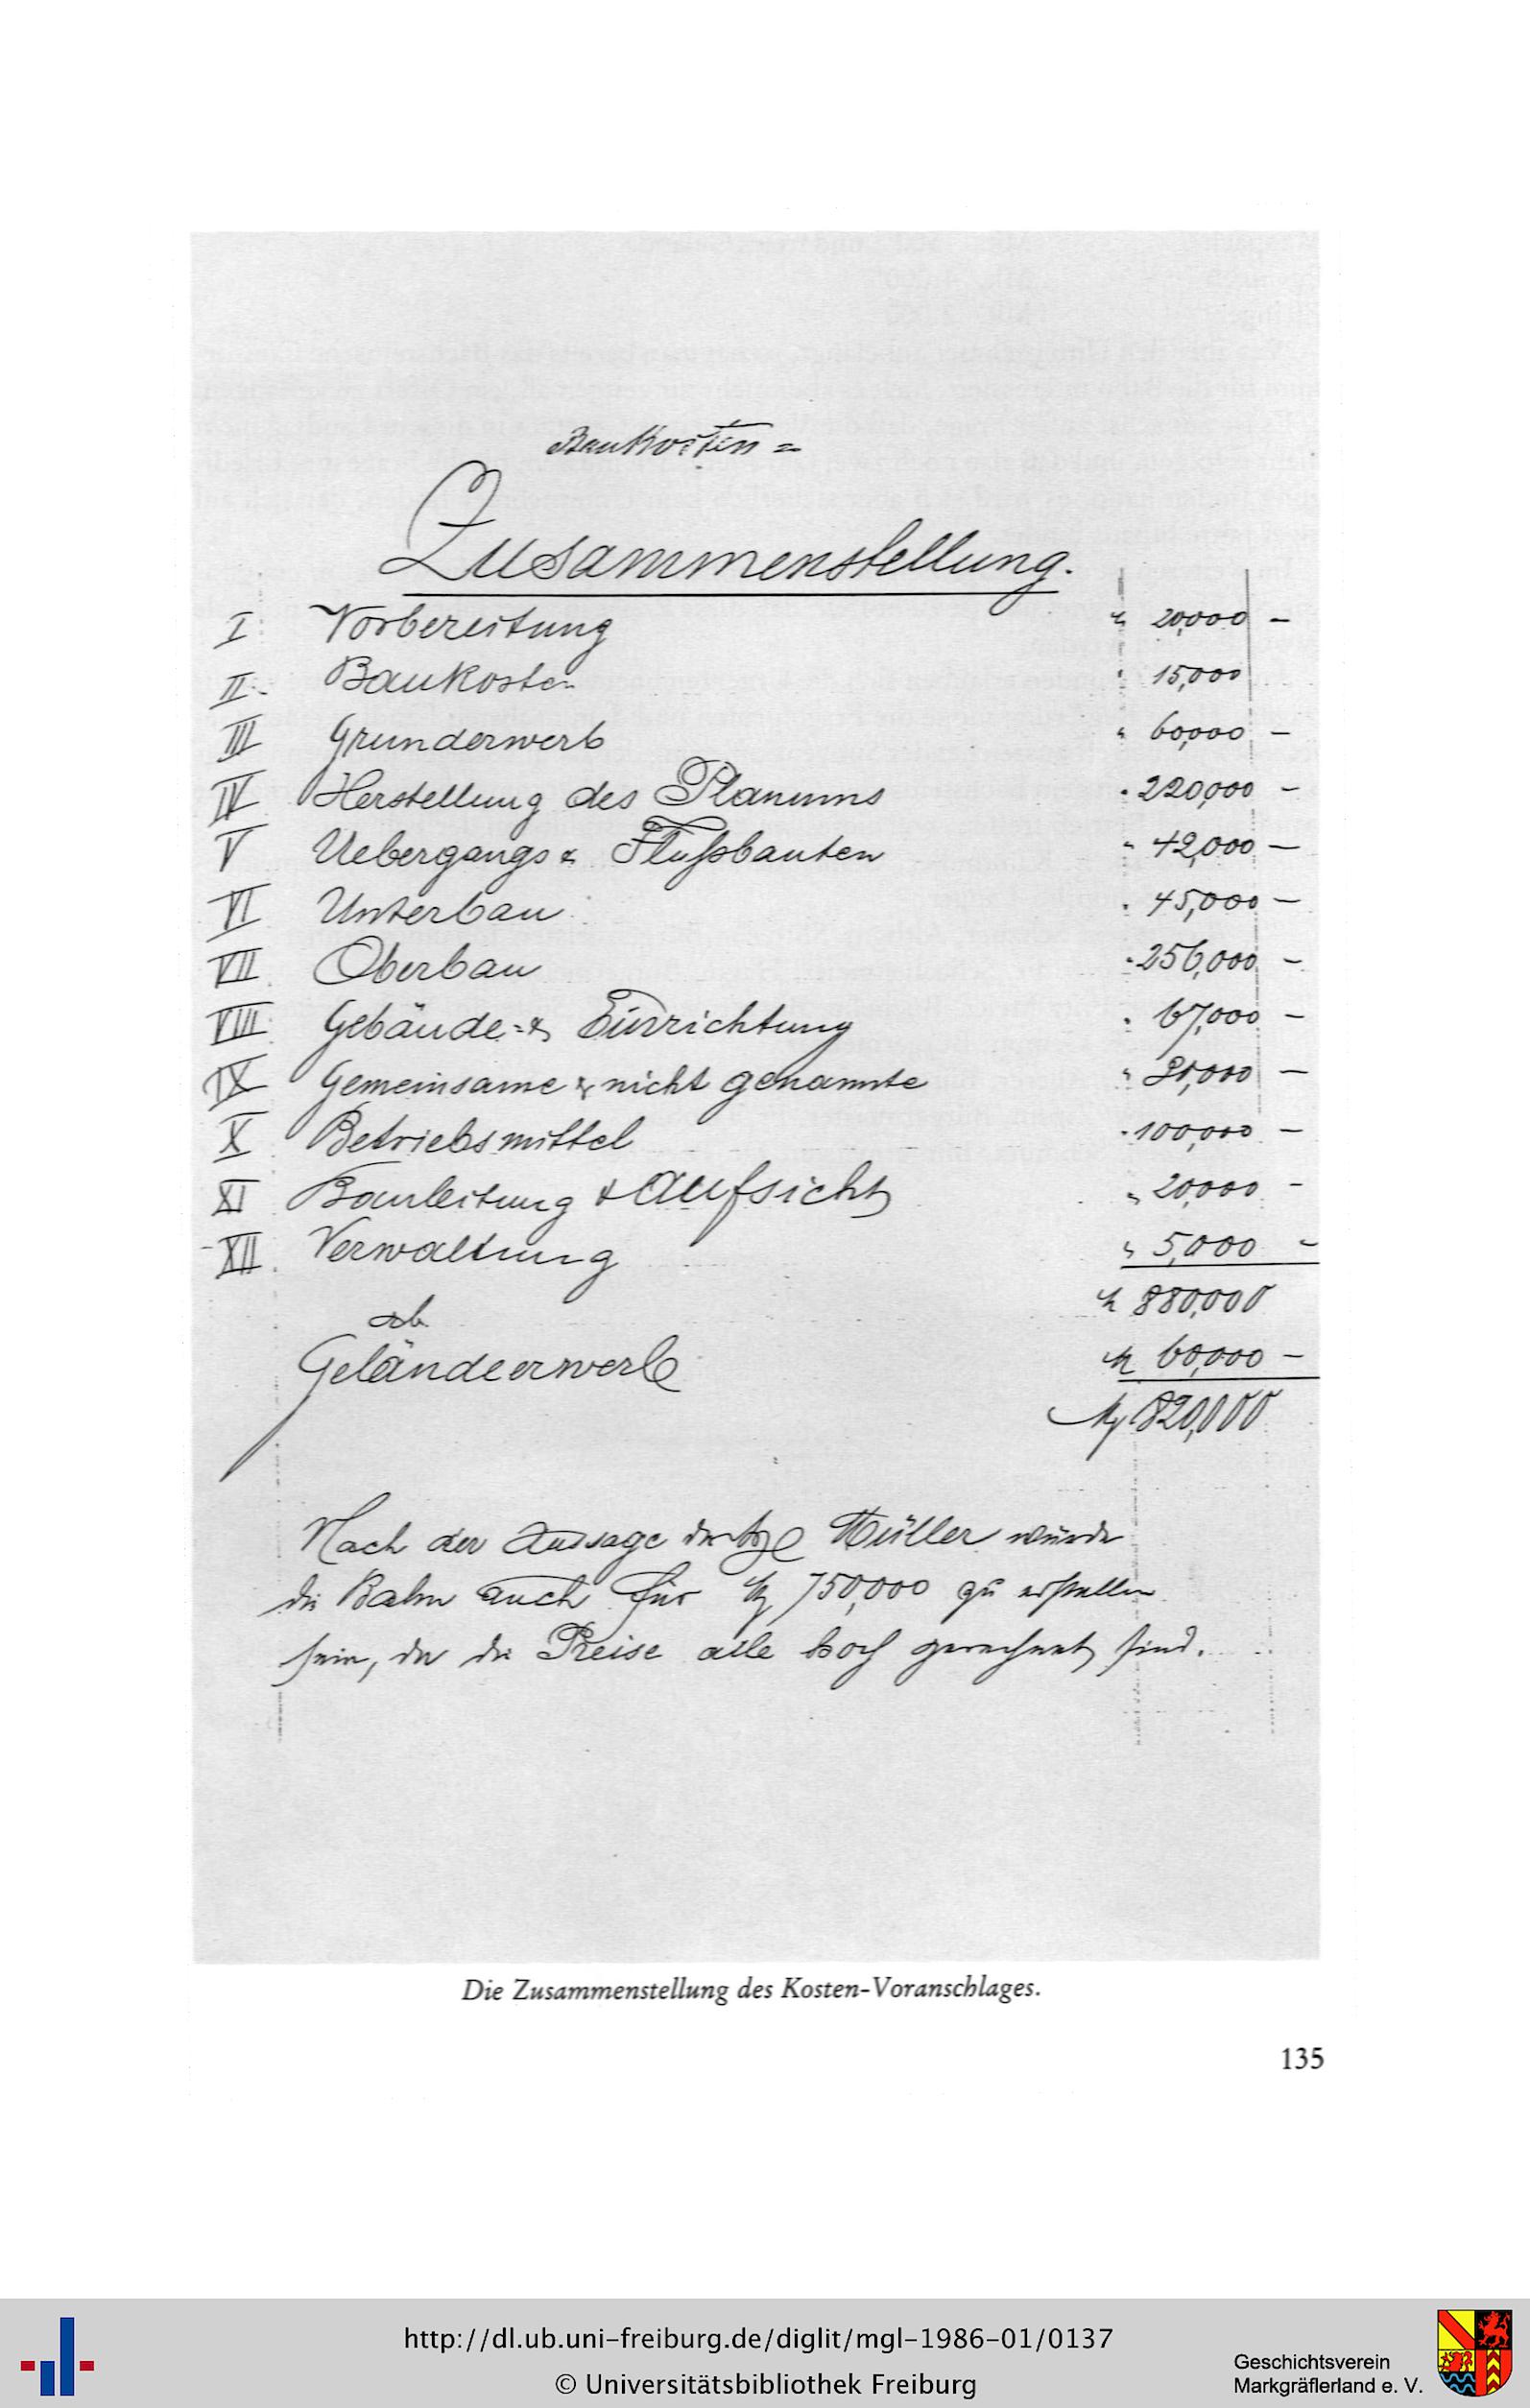 Baukosten =
Zusammenstellung.
I Vorbereitung " 20,000 –
II. Baukosten " 15,000
III Grunderwerb " 60,000 –
IV Herstellung des Planums " 220,000 –
V Uebergangs & Flußbauten " 42,000 –
VI Unterbau " 45,000 –
VII Oberbau " 256,000 –
VIII Gebäude = & Einrichtung " 67,000 –
IX Gemeinsame & nicht genannte " 30,000 –
X Betriebsmittel " 100,000 –
XI Bauleitung & Aufsicht " 20,000 –
XII Verwaltung " 5,000 –
M 880,000
ab
Geländeerwerb M 60,000 –
M 820,000
Nach der Aussage Müller würde
die Bahn auch für M 750,000 zu erstellen
sein, da die Preise alle hoch gerechnet sind.
Die Zusammenstellung des Kosten-Voranschlages.
135
http://dl.ub.uni-freiburg.de/diglit/mgl-1986-01/0137
© Universitätsbibliothek Freiburg
Geschichtsverein
Markgräflerland e. V.